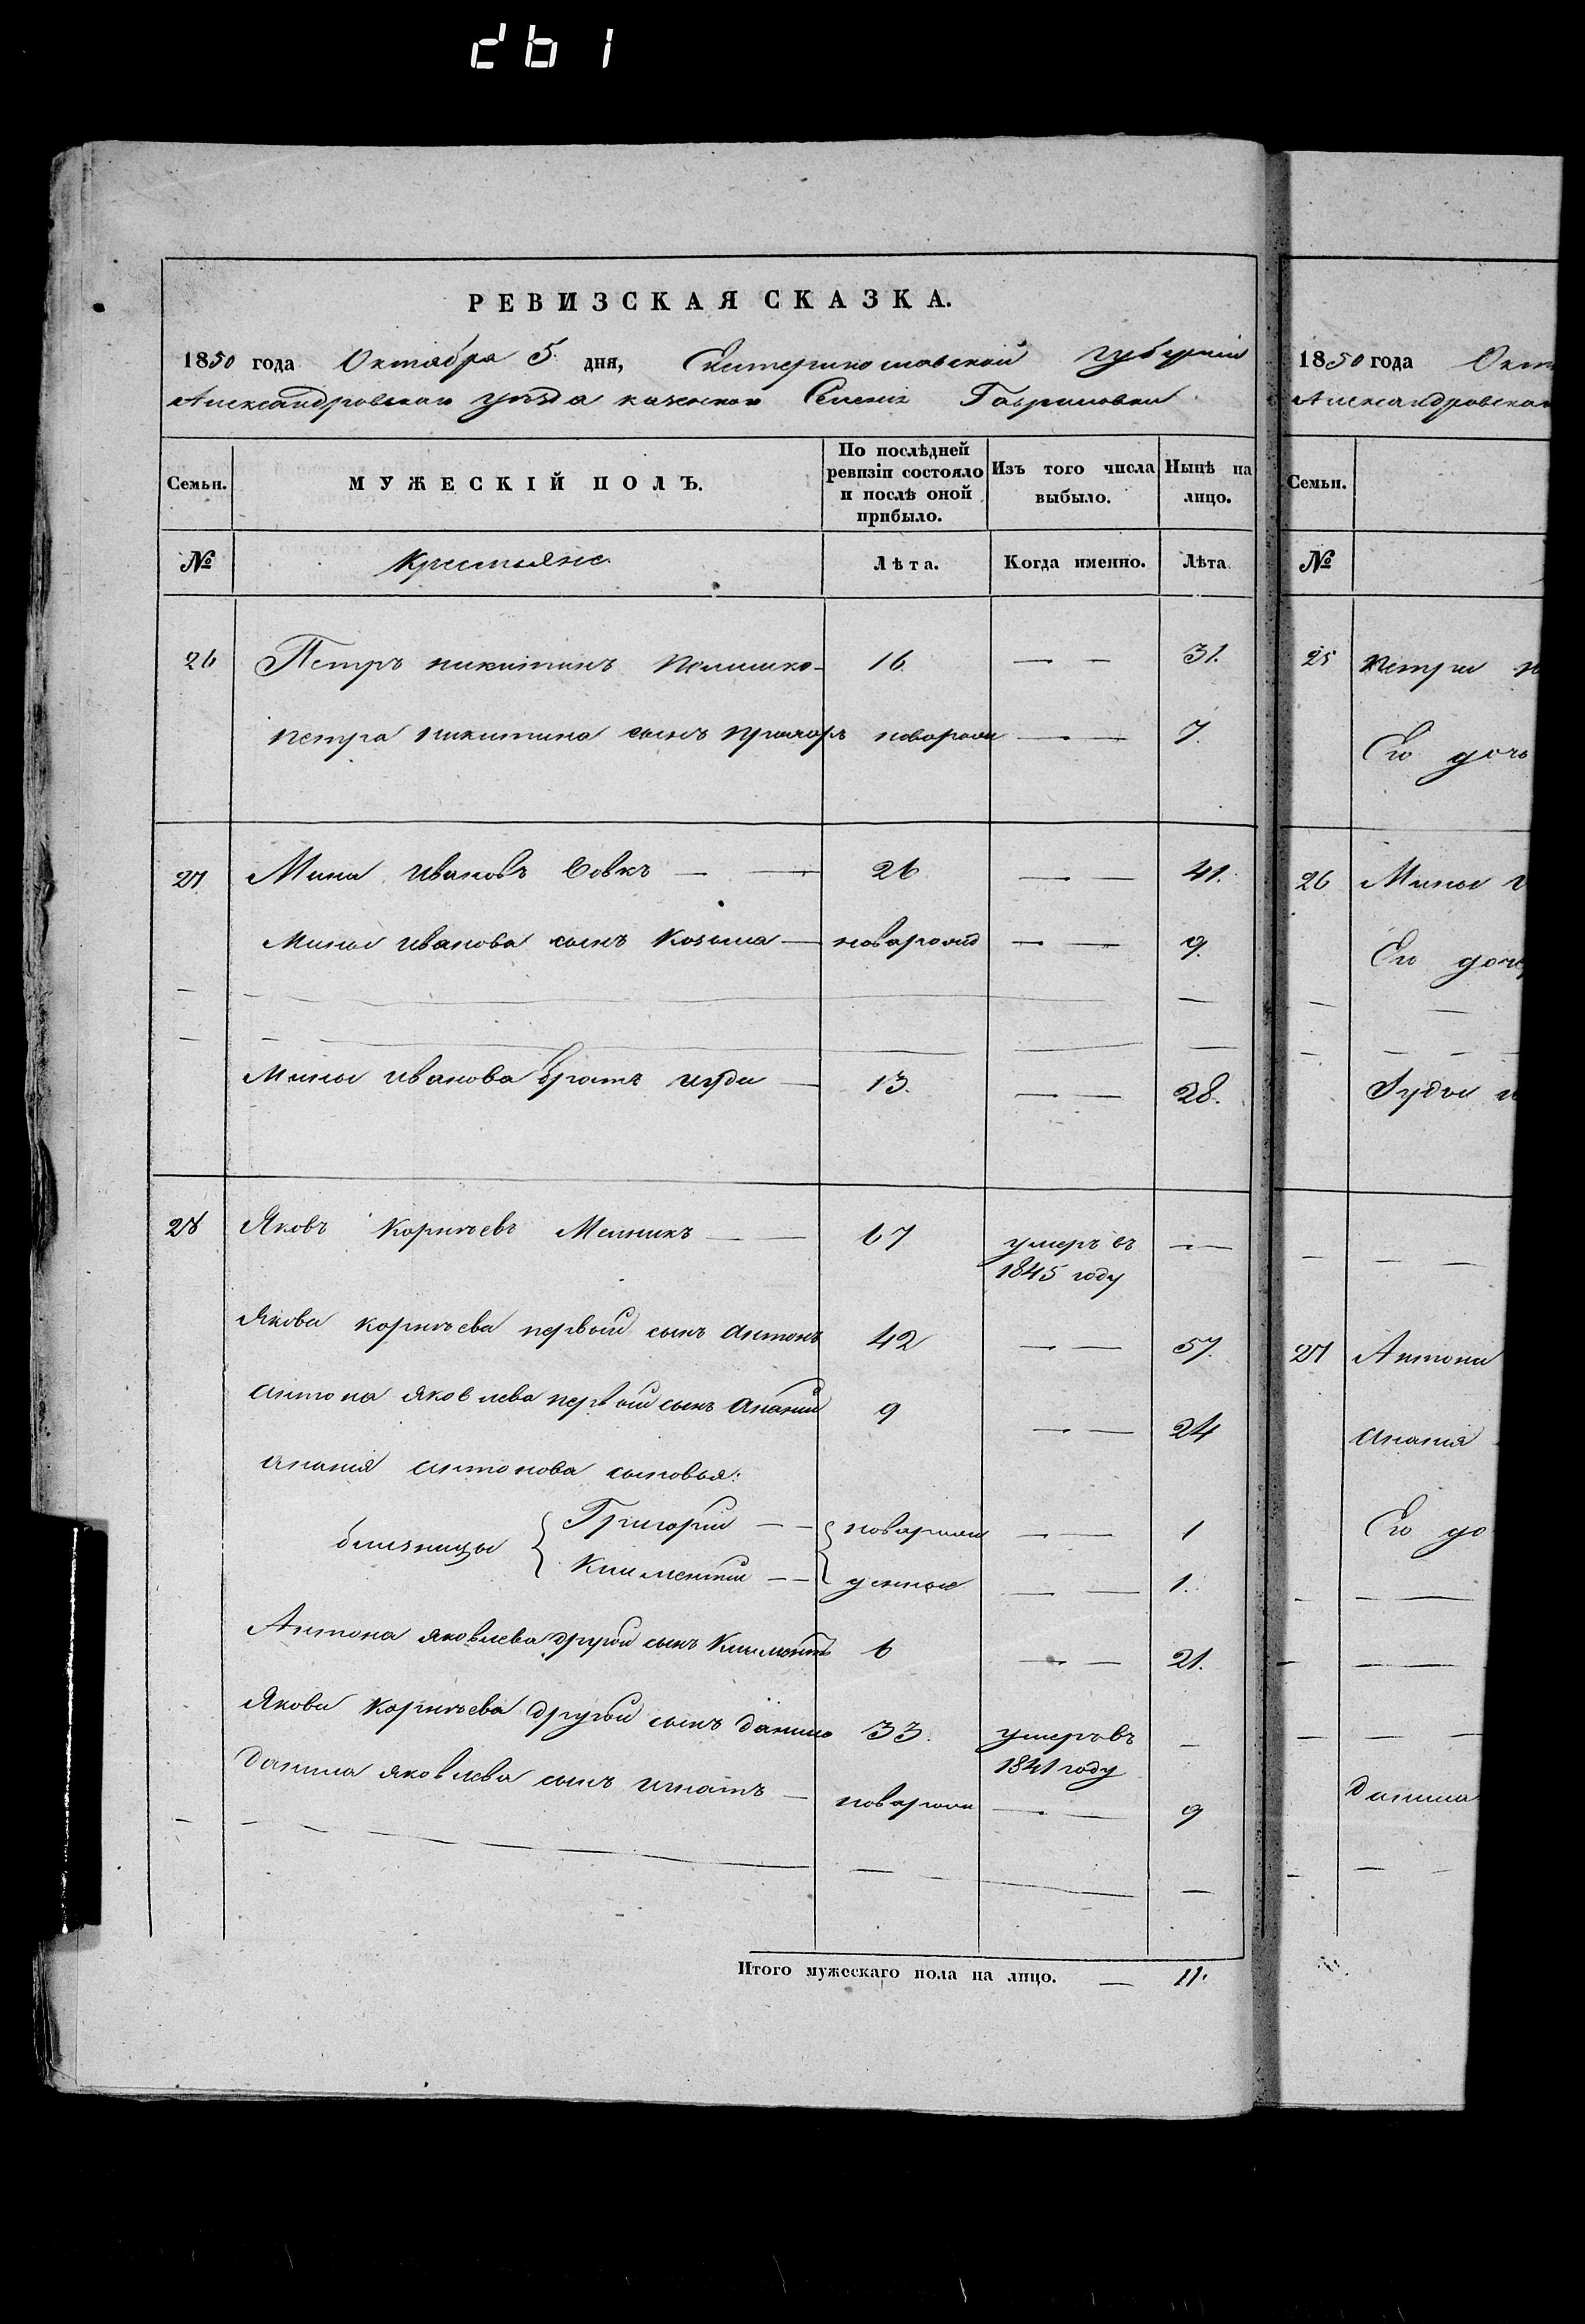 261
РЕВИЗСКАЯ СКАЗКА.
1850 года Октября 5. дня, Екатеринославской губернiи
Александровскаго уѣзда казенного Селенiя Гавриловки
Семьи.
МУЖЕСКІЙ ПОЛЪ.
По послѣдней ревизіи состояло и послѣ оной прибыло.
Изъ того числа выбыло.
Нынѣ на лицо.
№
Крестьяне
Лѣта.
Когда именно.
Лѣта
26 Петръ никитинъ 16 — — 31.
петра никитина сынъ прохоръ новорож — — 7.
27 Мина Ивановъ Вовкъ — — 26 — — 41.
Мины Иванова сынъ Козьма — новарожд — — 9.
Мины Иванова братъ иуда — 13. — — 28.
28 Яковъ Корнѣевъ Мельникъ — — 67 умеръ въ 1845 году — —
Якова корнѣева первый сынъ антонъ 42 — — 57.
антона яковлева первый сынъ ананий 9 — — 24
ананiя антонова сыновья:
близнецы { Григорiй — — { новорож — — 1
Климентий — — денные — — 1.
Антона яковлева другой сынъ Климентъ 6 — — 21.
Якова Корнѣева другой сынъ данило 33. умеръ въ 1841 году —
данила яковлева сынъ игнатъ — новорож — — 9
Итого мужескаго пола на лицо. — 11.
1850 года Окт
Александровскаго
Семьи.
№
25 петра н
Его дочь
26 Мины и
Его доче
Іуды и
27 Антона
ананiя
Его до
данила